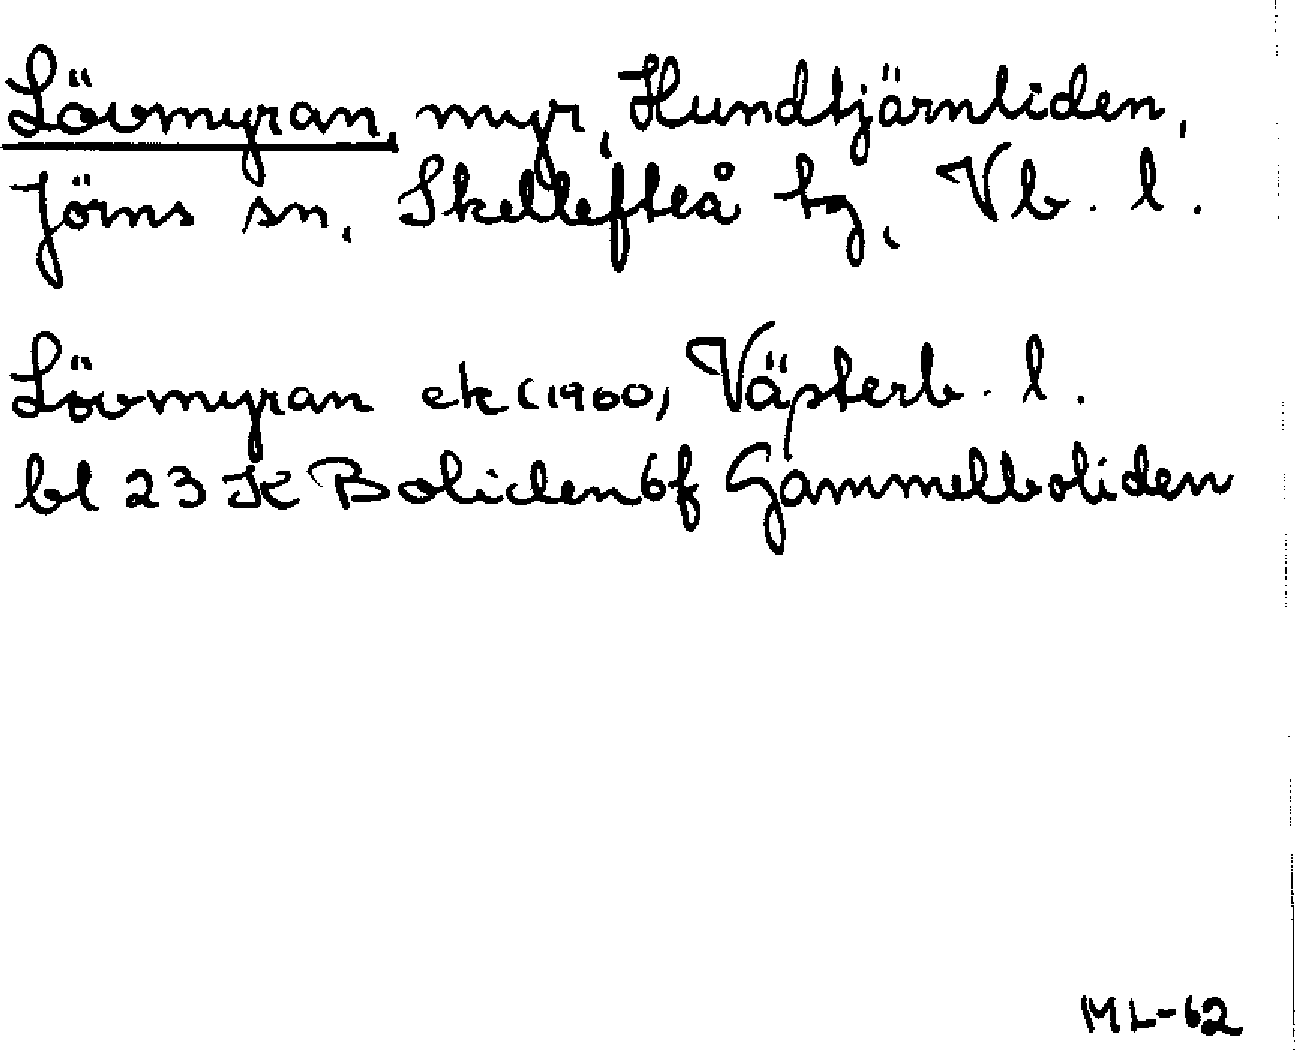 Lövmyran, myr, Hundtjärnliden,
Jörns sn, Skellefteå tg, Vb. l.
Lövmyran ek (1960) Västerb. l.
bl 23 K Boliden 6f Gammelboliden
ML-62